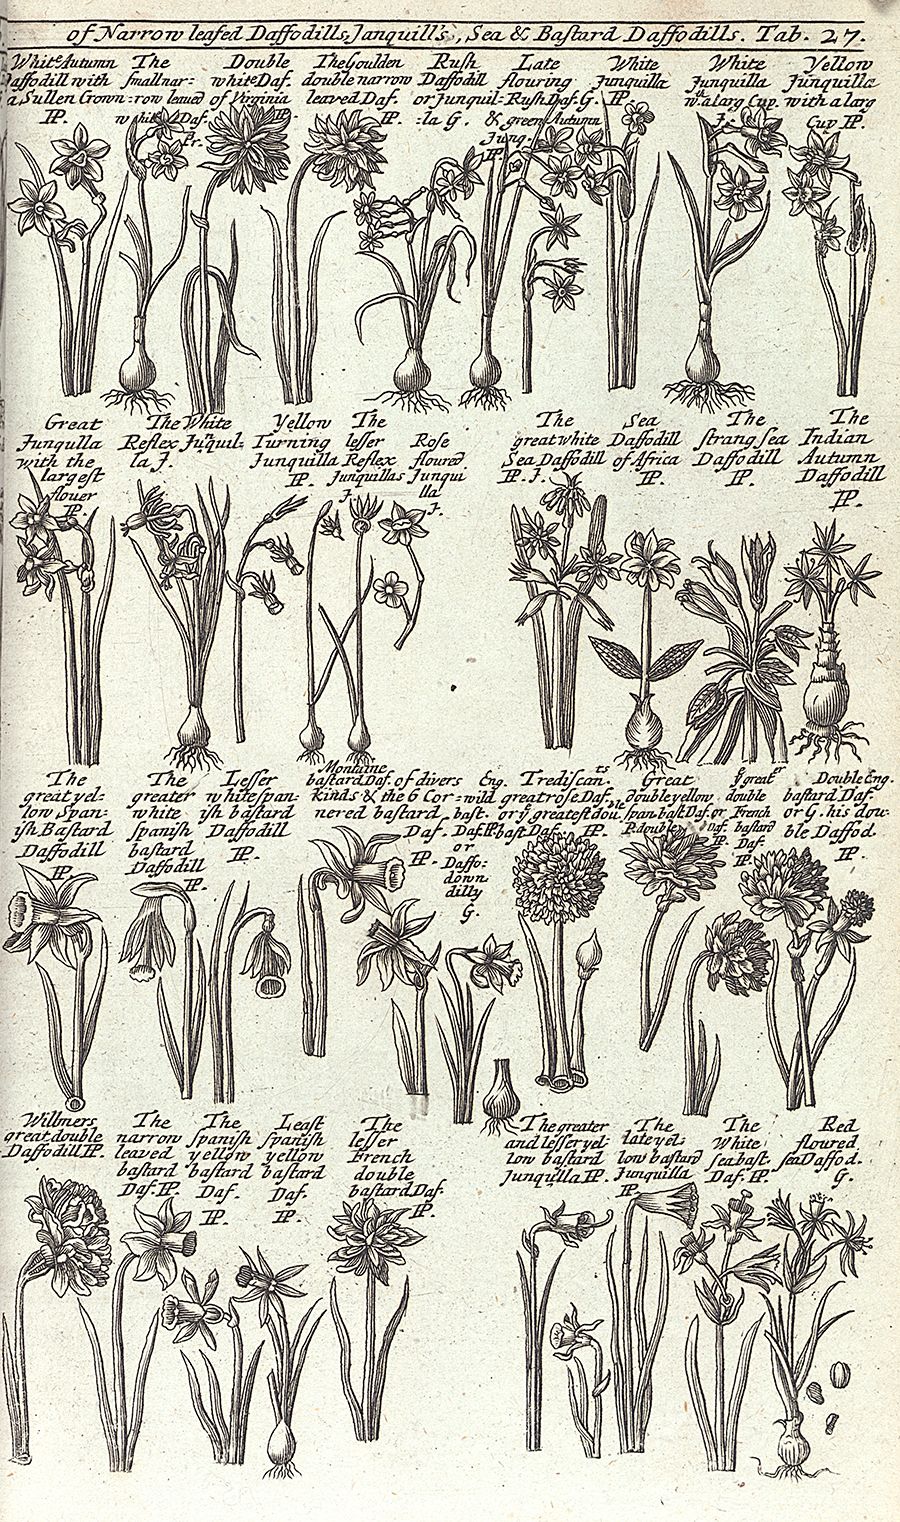 of Narrow leafed Daffodills, Janquill's, Sea & Bastard Daffodills. Tab. 27.
White Autumn
affodill with
a Sullen Crown
IP.
The
small nar=
=row leaued
white Daf.
Pr.
Double
white Daf.
of Virginia
IP.
The Goulden
double narrow
leaved Daf.
IP.
Rush
Daffodill
or Junquil=
=la G.
Late
flouring
Rush Daf. G.
& green Autumn
Jung.
IP.
White
Junquilla
IP.
White
Junquilla
w. a larg Cup.
J.
Yellow
Junquilla
with a larg
Cup IP.
Great
Junqulla
with the
largest
flouer
IP.
The White
Reflex Juquil=
la J.
Yellow
Turning
Junquilla
IP.
The
lesser
Reflex
Junquillas
J.
Rose
floured
Junqui
lla
J.
The
great white
Sea Daffodill
IP. J.
Sea
Daffodill
of Africa
IP.
The
strang sea
Daffodill
IP.
The
Indian
Autumn
Daffodill
IP.
The
great yel=
low Span=
ish Bastard
Daffodill
IP.
The
greater
white
spanish
bastard
Daffodill
IP.
Lesser
white span=
ish bastard
Daffodill
IP.
Montaine
bastard Daf. of divers
kinds & the 6 Cor=
nered bastard
Daf.
IP.
Eng.
wild
bast.
Daf. IP.
or
Daffo=
down
dilly
G.
Trediscants
great rose Daf.
or ye greatest double
bast Daf. IP.
Great
double yellow
span. bast Daf. or
P. double
Daf. IP.
ye great
double
French
bastard
Daf.
IP.
Double Eng.
bastard Daf.
or G. his dou=
ble Daffod.
IP.
Willmers
great double
Daffodill IP.
The
narrow
leaved
bastard
Daf. IP.
The
spanish
yellow
bastard
Daf.
IP.
Least
spanish
yellow
bastard
Daf.
IP.
The
lesser
French
double
bastard Daf.
IP.
The greater
and lesser yel=
low bastard
Junquilla IP.
The
late yel=
low bastard
Junquilla
IP.
The
White
sea bast.
Daf. IP.
Red
floured
sea Daffod.
G.